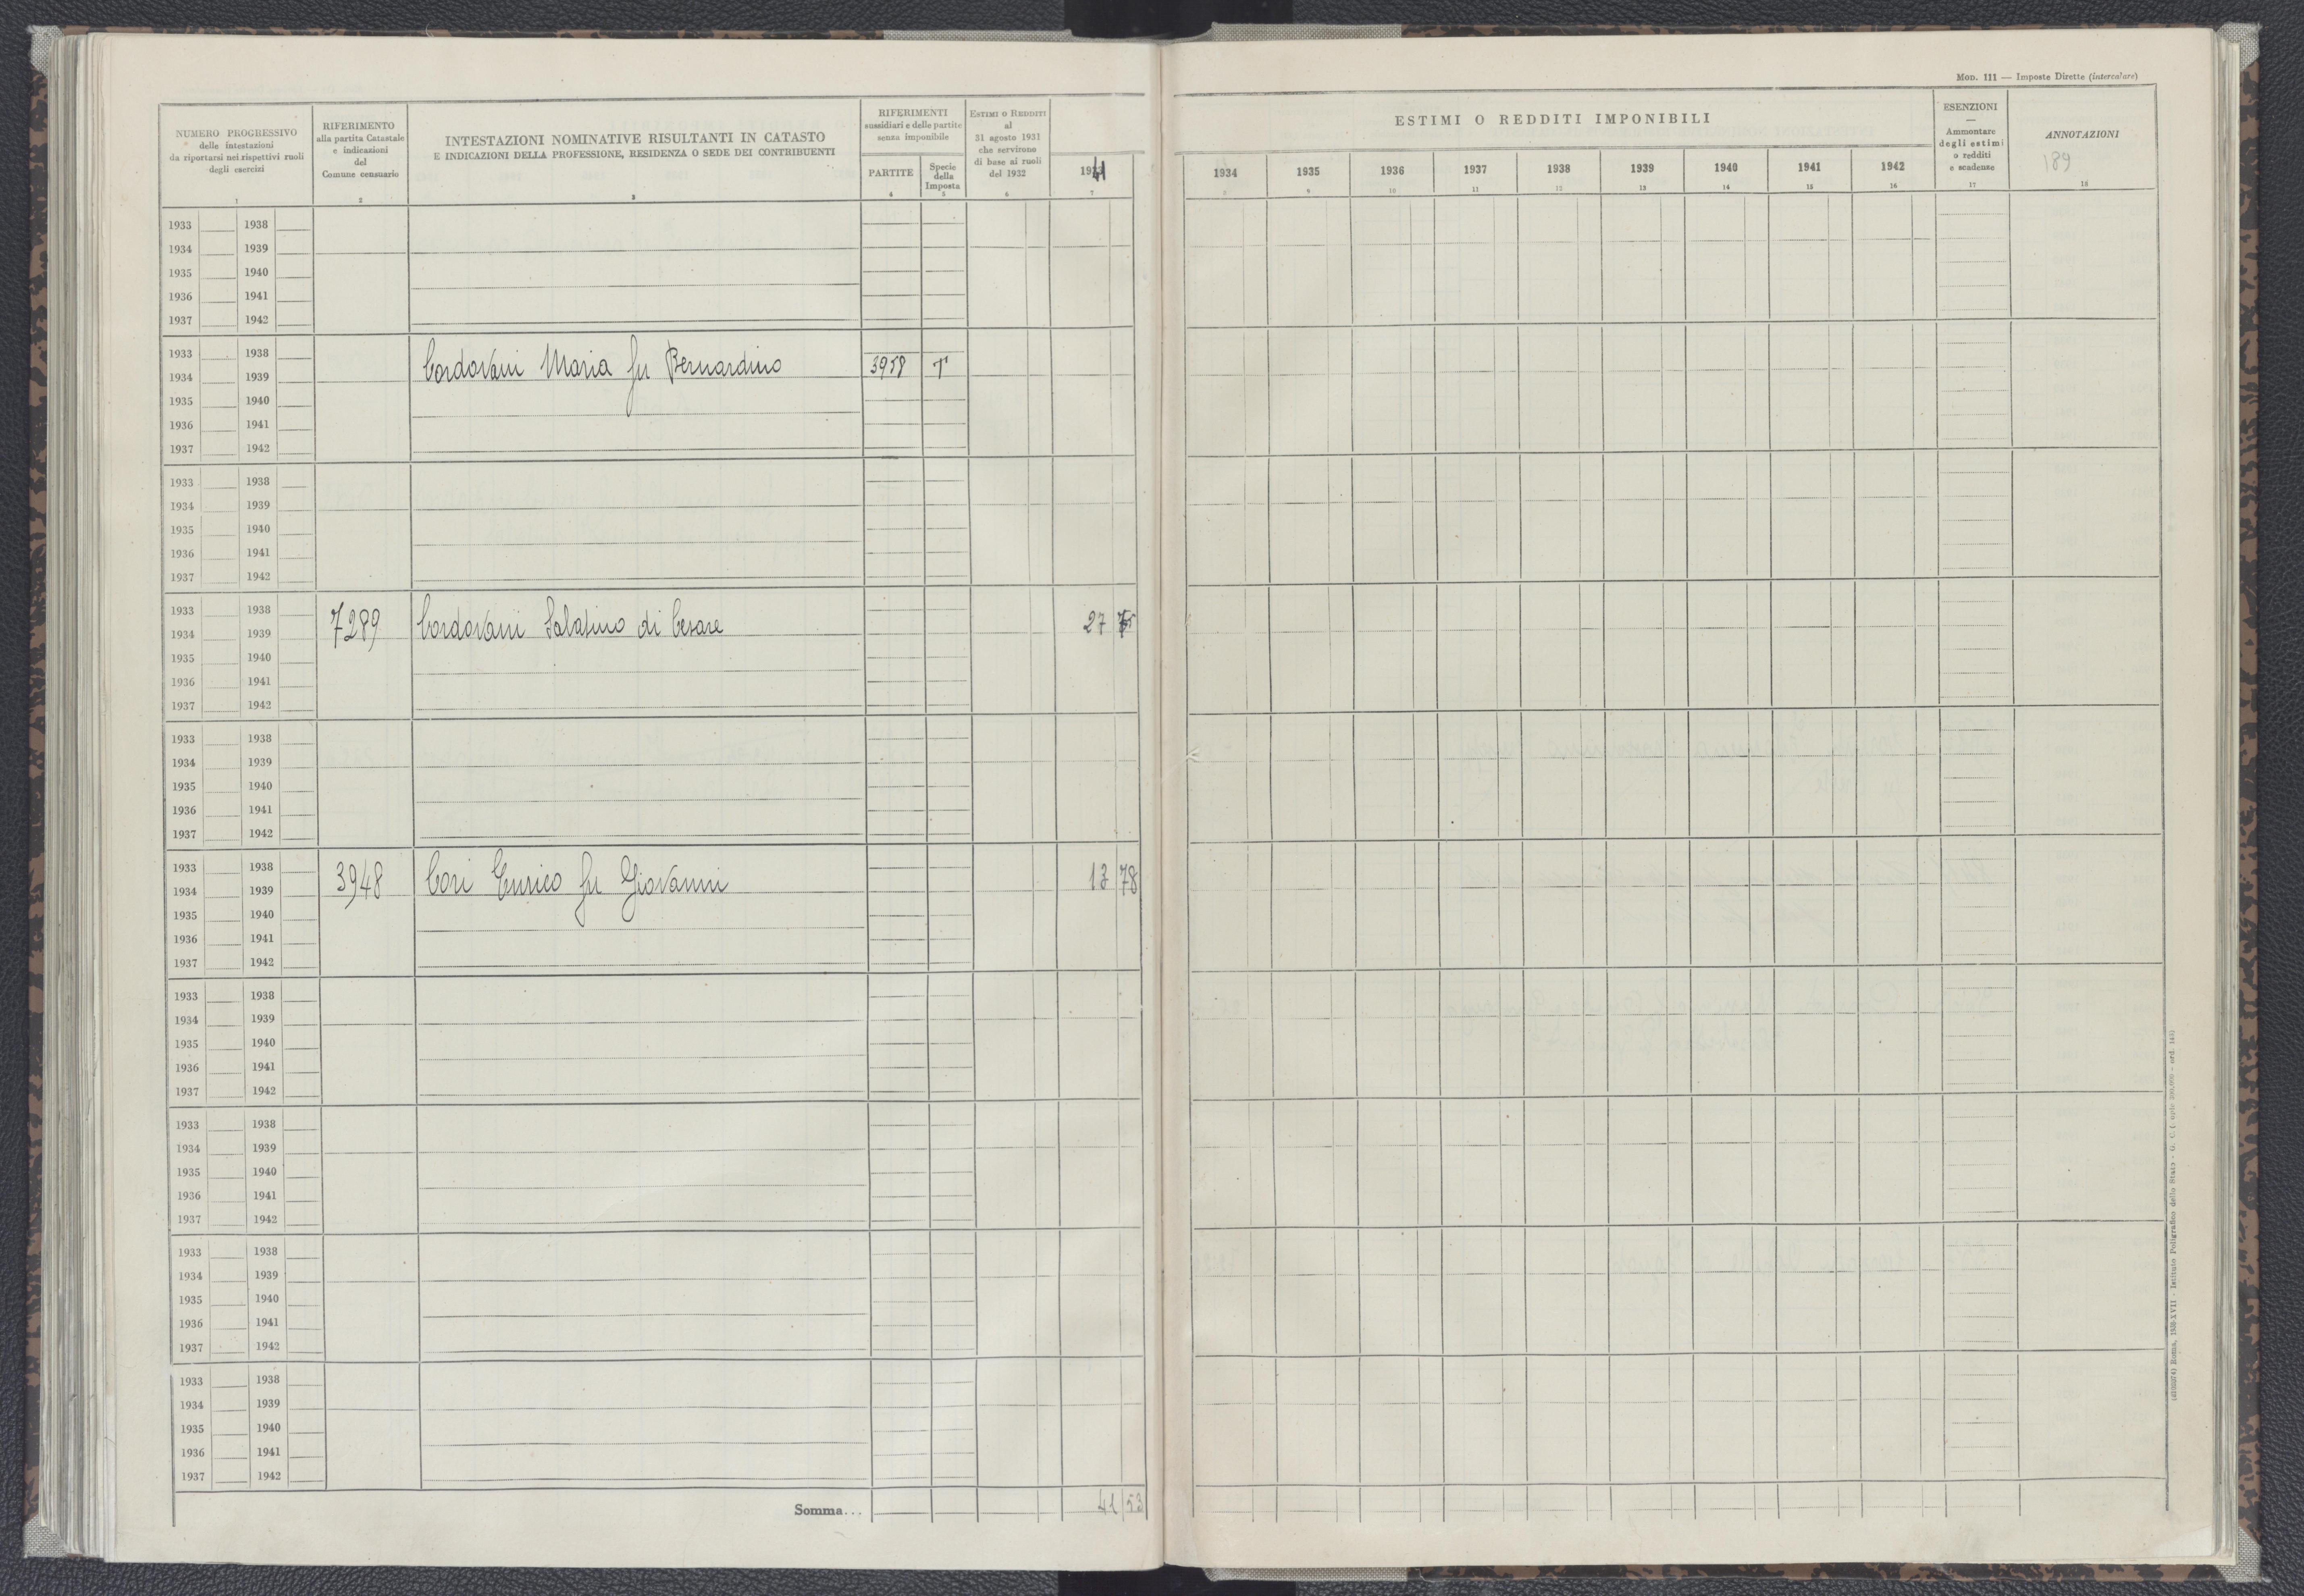 Mod. 111 — Imposte Dirette (intercalare)
NUMERO PROGRESSIVO
delle intestazioni
da riportarsi nei rispettivi ruoli
degli esercizi
1
RIFERIMENTO
alla partita Catastale
e indicazioni
del
Comune censuario
2
INTESTAZIONI NOMINATIVE RISULTANTI IN CATASTO
E INDICAZIONI DELLA PROFESSIONE, RESIDENZA O SEDE DEI CONTRIBUENTI
3
RIFERIMENTI
sussidiari e delle partite
senza imponibile
PARTITE
4
Specie
della
Imposta
5
ESTIMI O REDDITI
al
31 agosto 1931
che servirono
di base ai ruoli
del 1932
6
1941
7
ESTIMI O REDDITI IMPONIBILI
1934 1935 1936 1937 1938 1939 1940 1941 1942
8 9 10 11 12 13 14 15 16
ESENZIONI
—
Ammontare
degli estimi
o redditi
e scadenze
17
ANNOTAZIONI
189
18
1933 1938
1934 1939
1935 1940
1936 1941
1937 1942
1933 1938
1934 1939 Cordovani Maria fu Bernardino 3958 T
1935 1940
1936 1941
1937 1942
1933 1938
1934 1939
1935 1940
1936 1941
1937 1942
1933 1938
1934 1939 7289 Cordovani Sabatino di Cesare 27 75
1935 1940
1936 1941
1937 1942
1933 1938
1934 1939
1935 1940
1936 1941
1937 1942
1933 1938
1934 1939 3948 Cori Enrico fu Giovanni 13 78
1935 1940
1936 1941
1937 1942
1933 1938
1934 1939
1935 1940
1936 1941
1937 1942
1933 1938
1934 1939
1935 1940
1936 1941
1937 1942
1933 1938
1934 1939
1935 1940
1936 1941
1937 1942
1933 1938
1934 1939
1935 1940
1936 1941
1937 1942
Somma... 41 53
Roma, 1938-XVII - Istituto Poligrafico dello Stato - G. C.